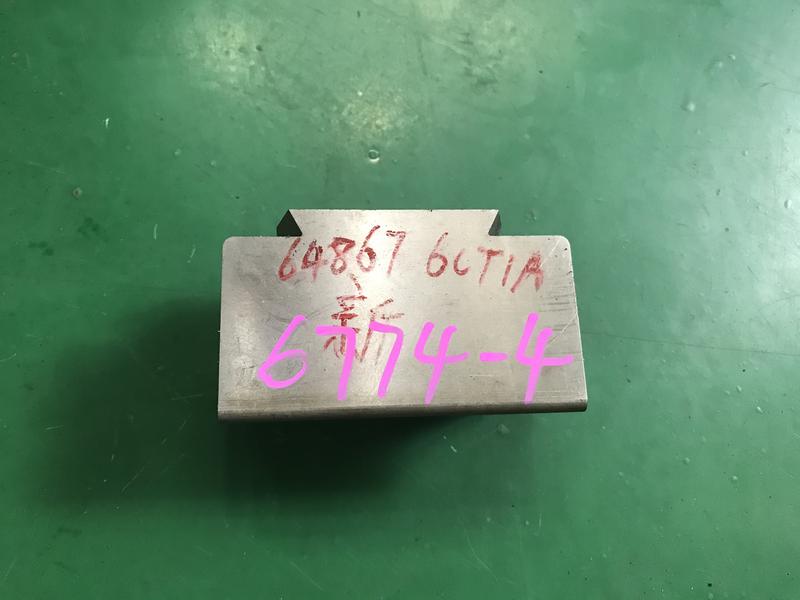 64867 6CT1A
新
6774-4